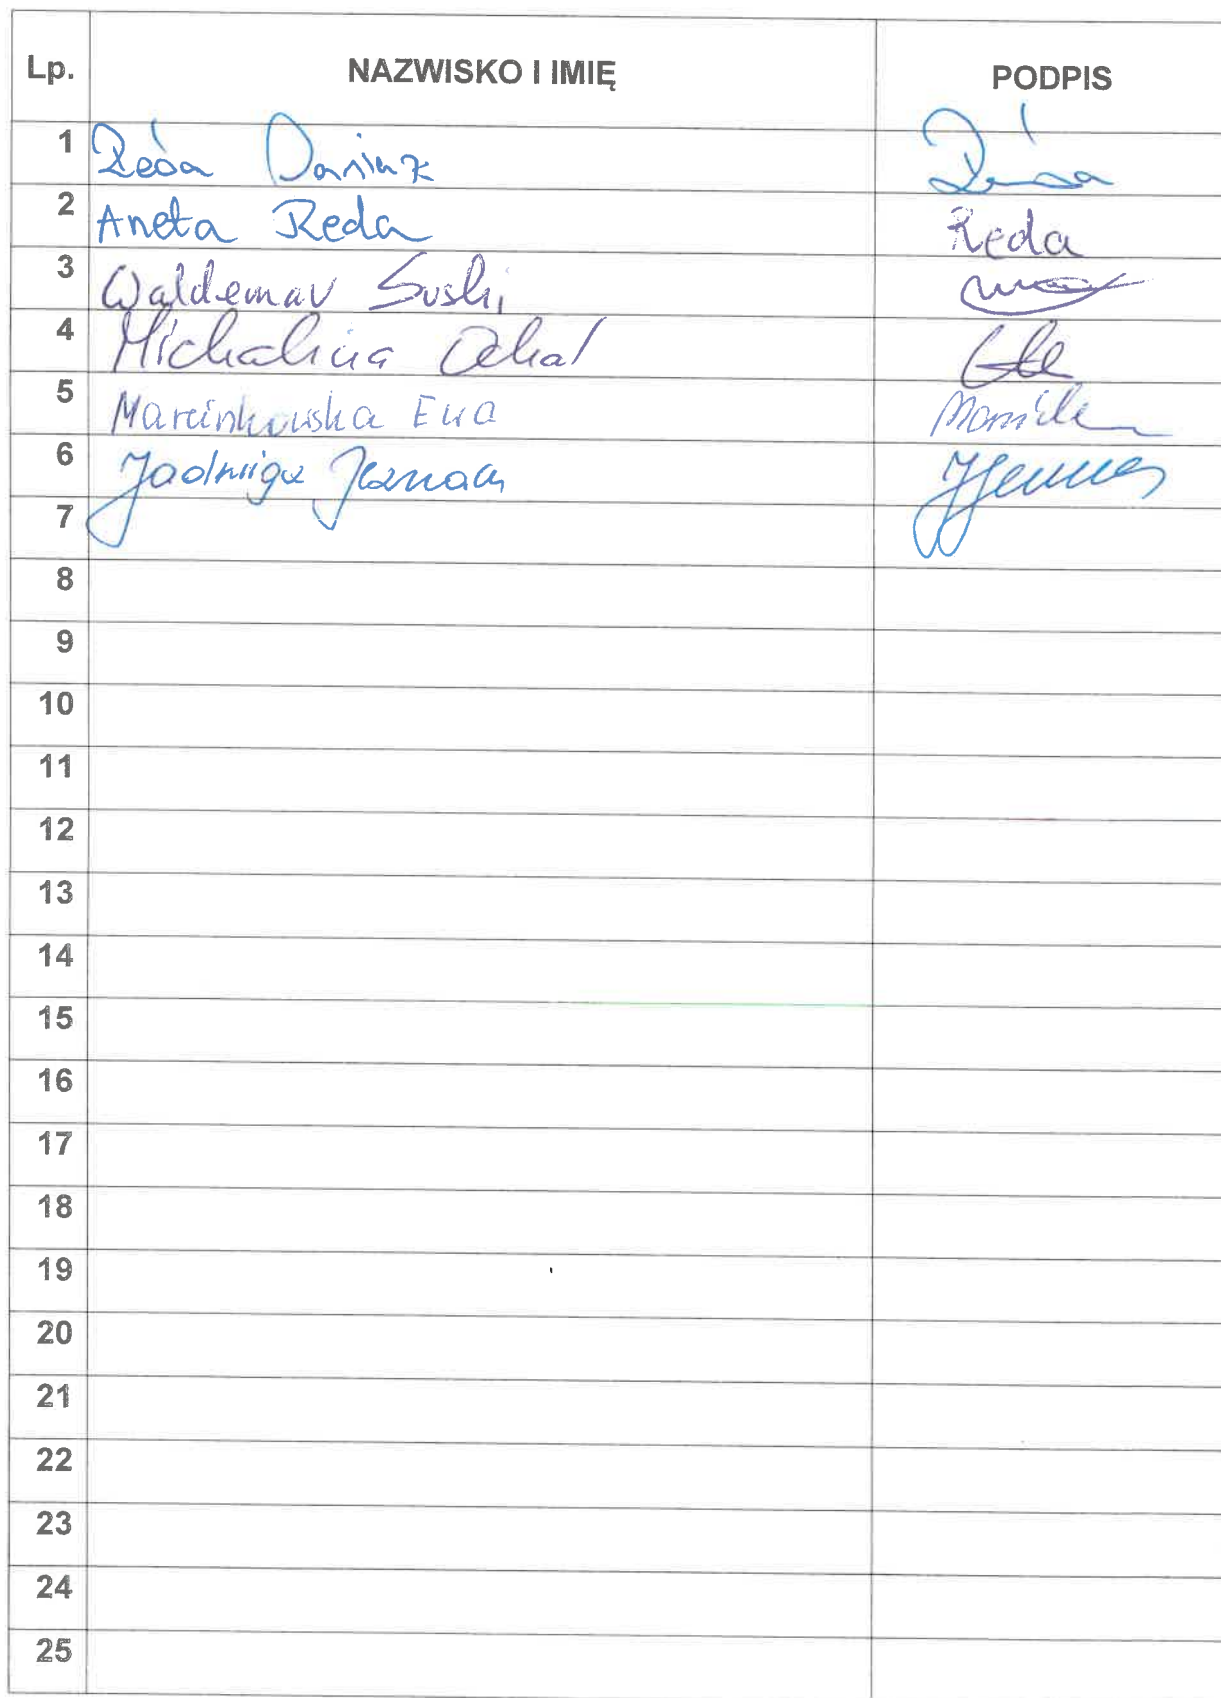 Lp. NAZWISKO I IMIĘ PODPIS
1 Reda Dariusz
2 Aneta Reda Reda
3 Waldemar Suski
4 Michalina
5 Marcinkowska Ewa
6 Jadwiga
7
8
9
10
11
12
13
14
15
16
17
18
19
20
21
22
23
24
25